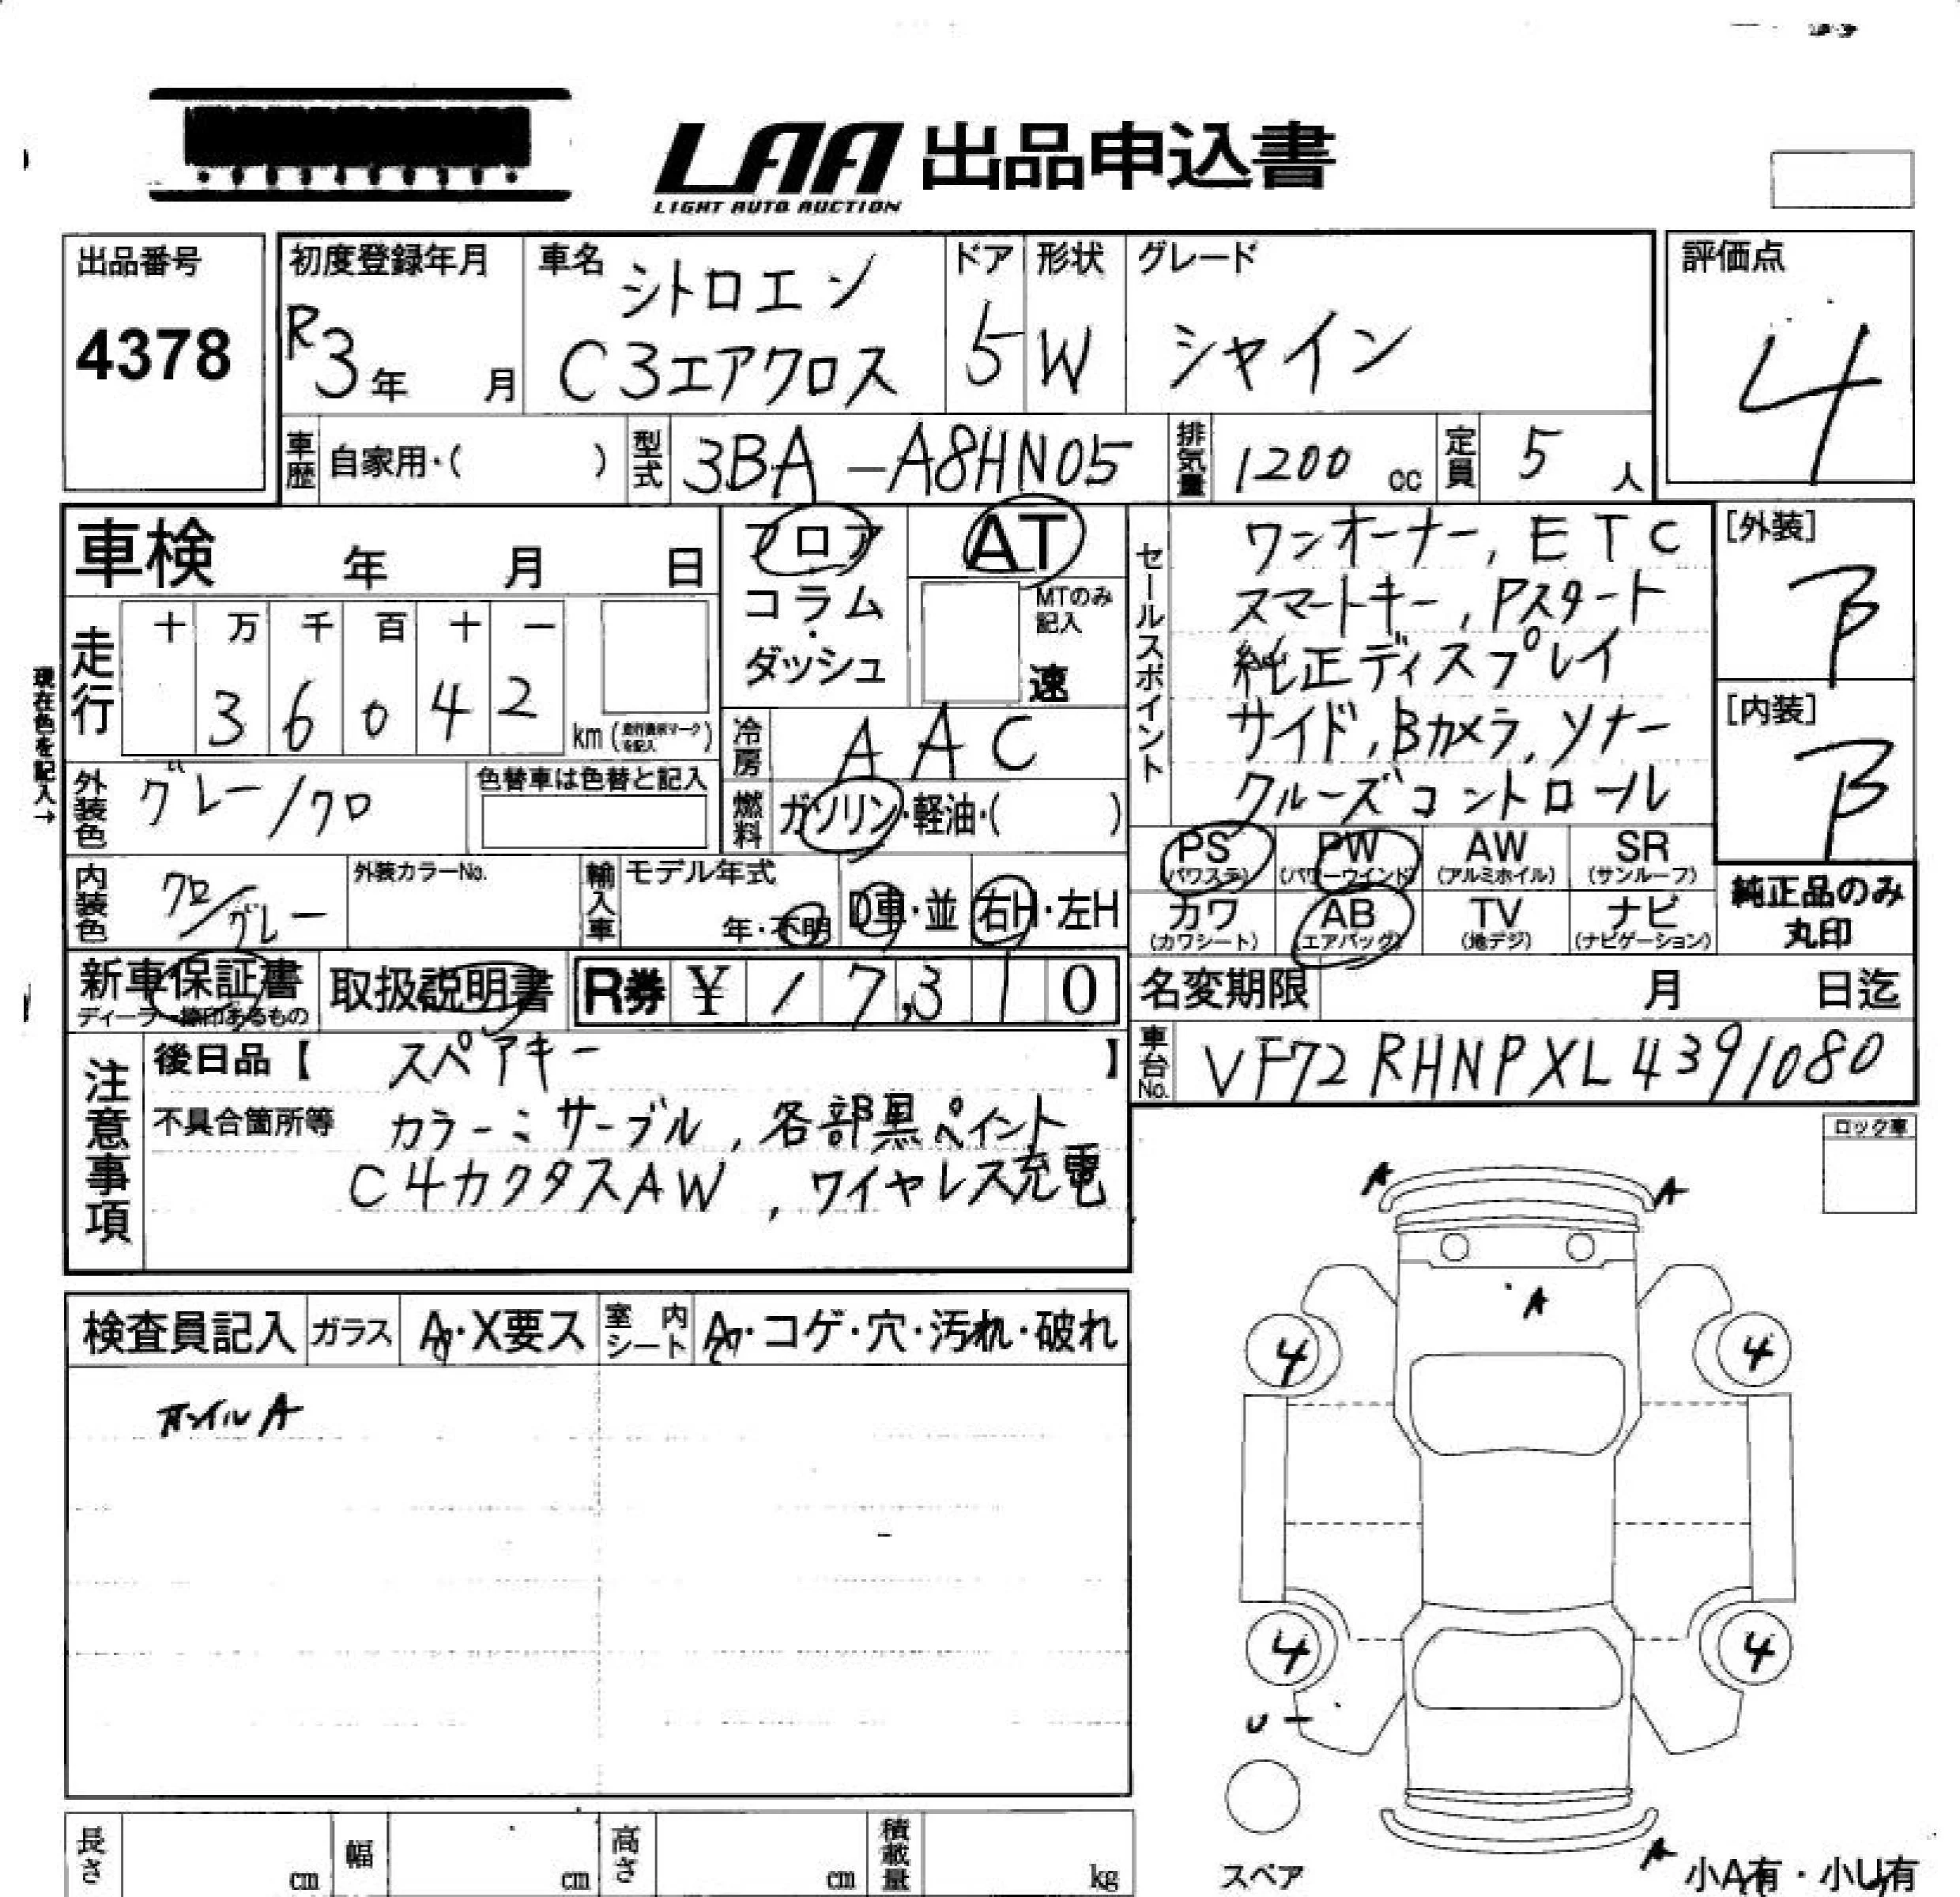 LAA 出品申込書
LIGHT AUTO AUCTION
出品番号
4378
初度登録年月
R3年 月
車名
シトロエン
C3エアクロス
ドア
5
形状
W
グレード
シャイン
評価点
4
車歴 自家用・( )
型式 3BA-A8HN05
排気量 1200 cc
定員 5 人
車検 年 月 日
フロア
コラム
・
ダッシュ
AT
MTのみ
記入
速
セールスポイント
ワンオーナー, ETC
スマートキー, Pスタート
純正ディスプレイ
サイド, Bカメラ, ソナー
クルーズコントロール
[外装]
B
[内装]
B
現在色を記入→
走行
十 万 千 百 十 一
3 6 0 4 2
km (走行表示マークを記入)
冷房 AAC
燃料 ガソリン・軽油・( )
外装色 グレー/クロ
色替車は色替と記入
内装色 クロ/グレー
外装カラーNo.
輸入車 モデル年式
年・不明 D車・並 右H・左H
PS
(パワステ)
PW
(パワーウインド)
AW
(アルミホイル)
SR
(サンルーフ)
カワ
(カワシート)
AB
(エアバッグ)
TV
(地デジ)
ナビ
(ナビゲーション)
純正品のみ
丸印
新車保証書
取扱説明書
R券 ¥ 17,310
名変期限 月 日迄
車台No. VF72RHNPXL4391080
注意事項
後日品【 スペアキー 】
不具合箇所等 カラーミサーブル, 各部黒ペイント
C4カクタスAW, ワイヤレス充電
ロック車
A A
A
4 4
4 4
U
A
検査員記入
ガラス A・X要ス
室内シート A・コゲ・穴・汚れ・破れ
ホイルA
スペア
小A有・小U有
長さ cm
幅 cm
高さ cm
積載量 kg